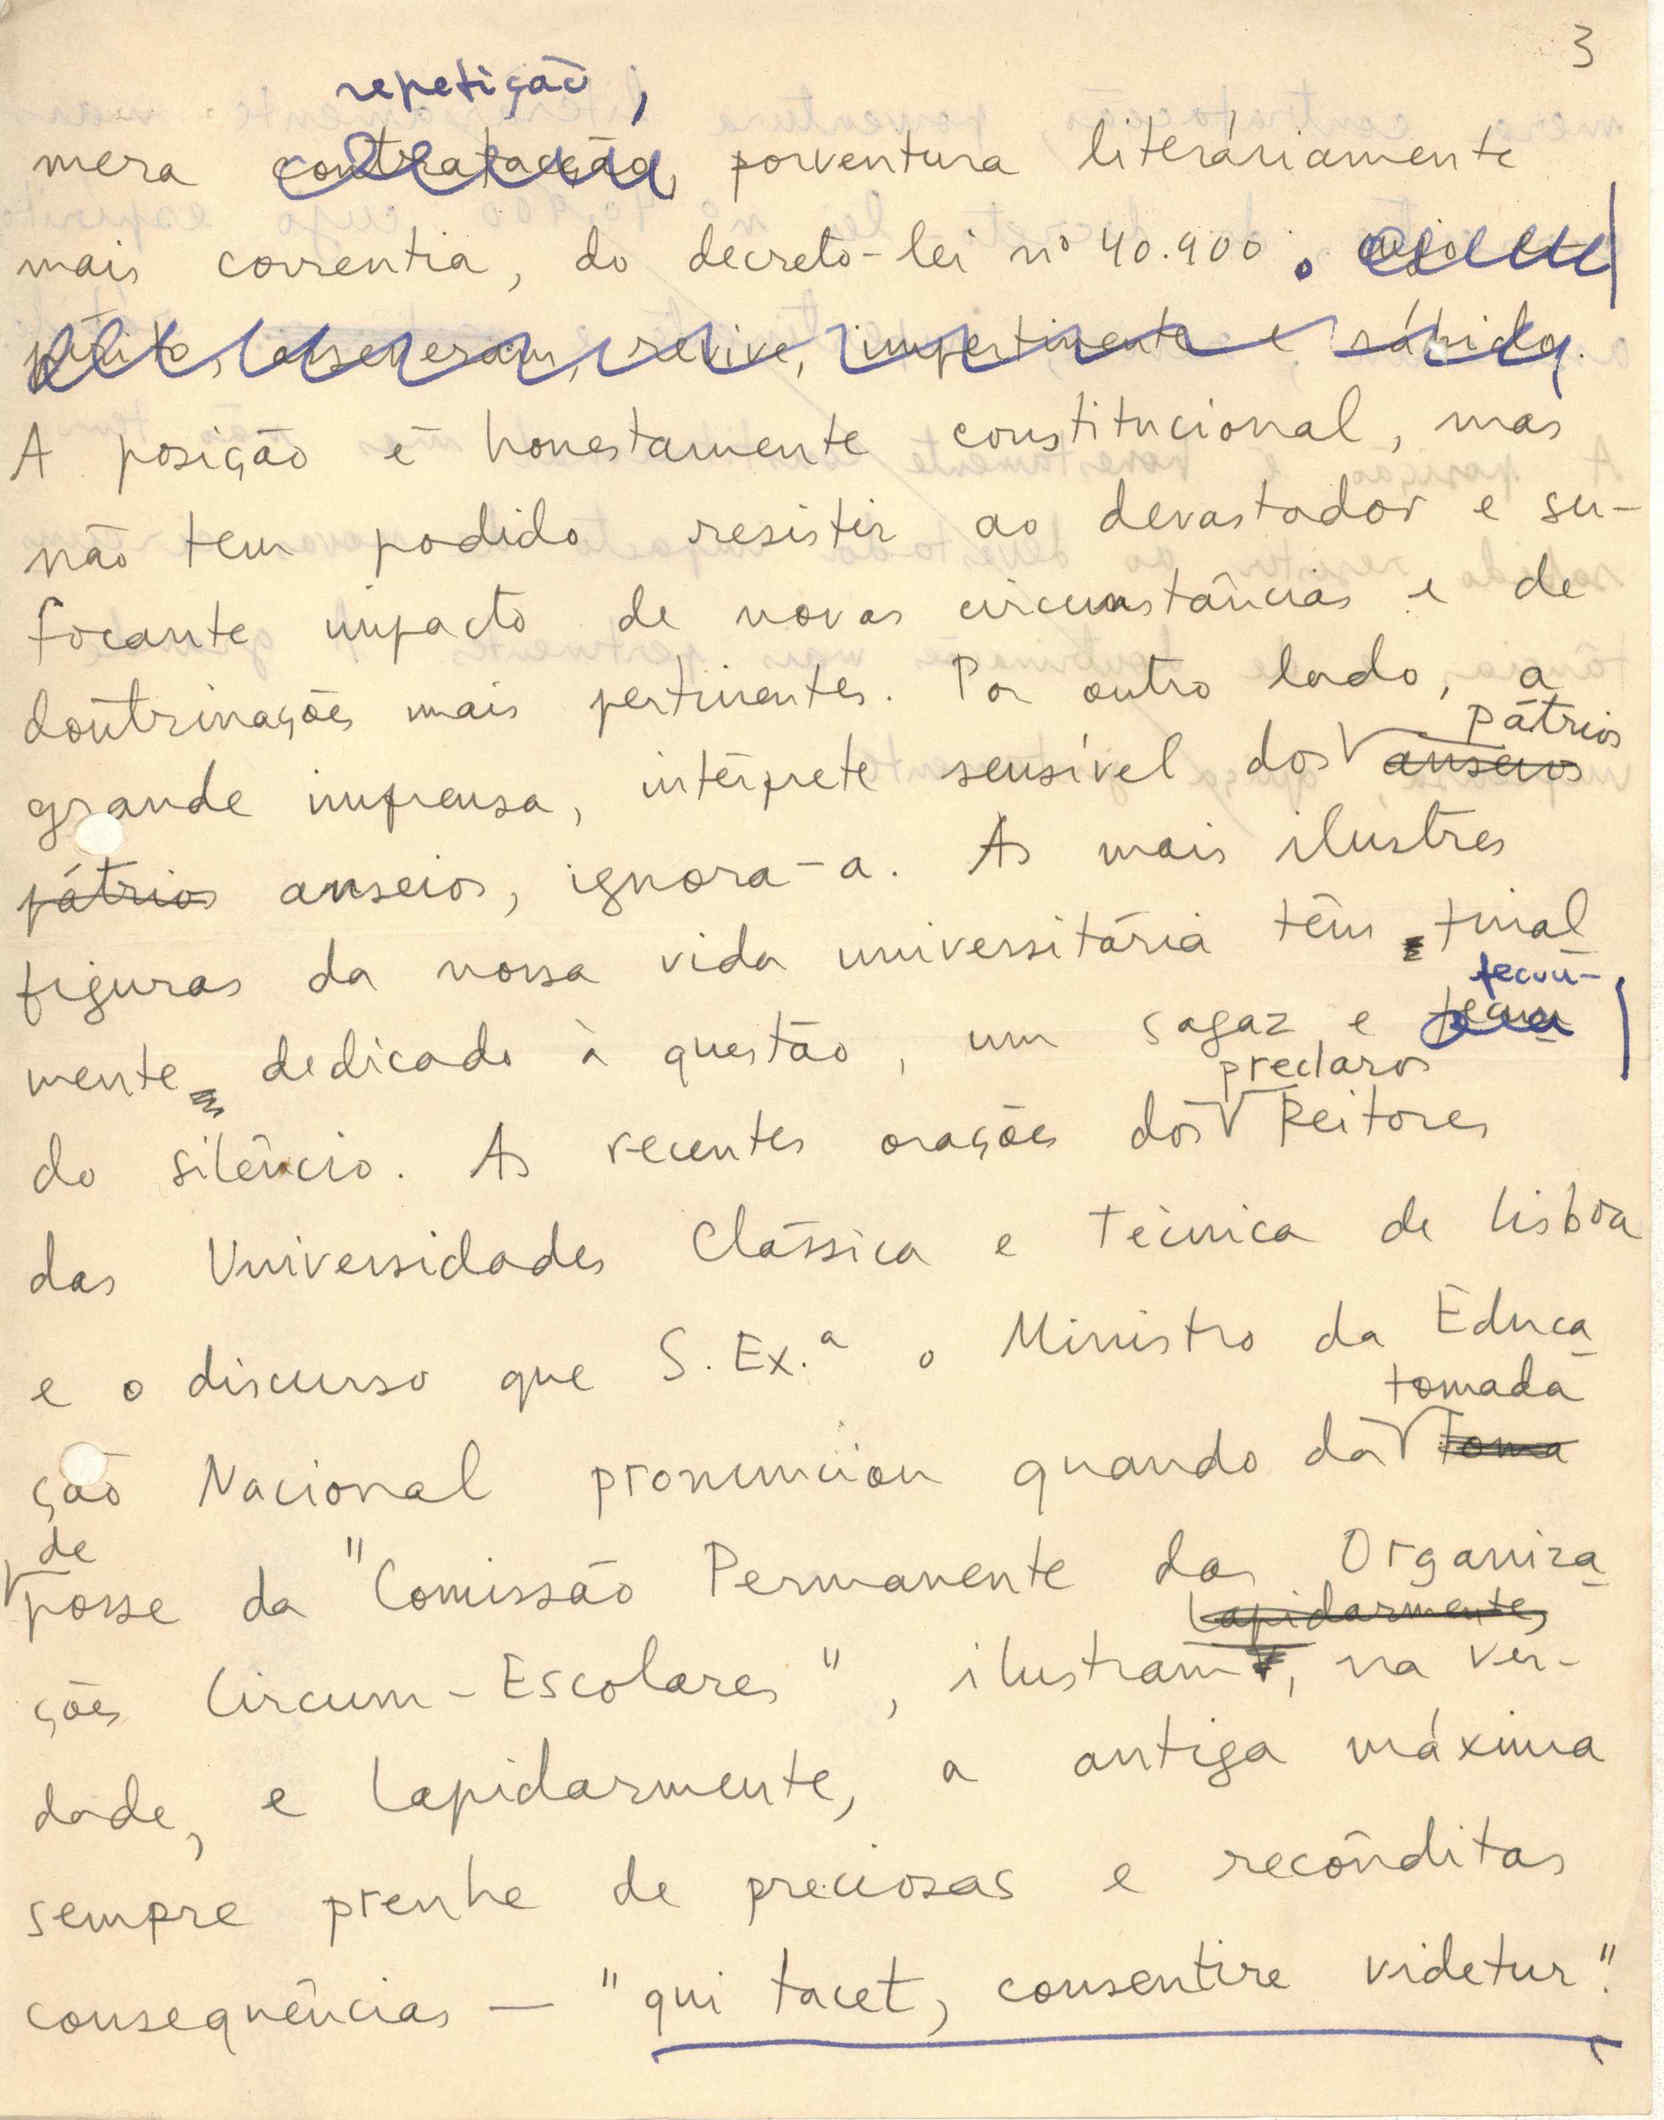 3
repetição,
mera contratação, porventura literáriamente
mais correntia, do decreto-lei nº 40.900. cujo es-
pírito, asseveram, revive, impertinente e rábido.
A posição é honestamente constitucional, mas
não tem podido resistir ao devastador e su-
focante impacto de novas circunstâncias e de
doutrinações mais pertinentes. Por outro lado, a
pátrios
grande imprensa, intérprete sensível dos anseios
pátrios anseios, ignora-a. As mais ilustres
figuras da nossa vida universitária têm, final
mente, dedicado à questão, um sagaz e fecun
fecun-
preclaros
do silêncio. As recentes orações dos Reitores
das Universidades Clássica e Técnica de Lisboa
e o discurso que S. Ex.ª o Ministro da Educa
tomada
ção Nacional pronunciou quando da toma
de
posse da "Comissão Permanente das Organiza
lapidarmente,
ções Circum-Escolares", ilustram, na ver-
dade, e lapidarmente, a antiga máxima
sempre prenhe de preciosas e recônditas
consequências — "qui tacet, consentire videtur".